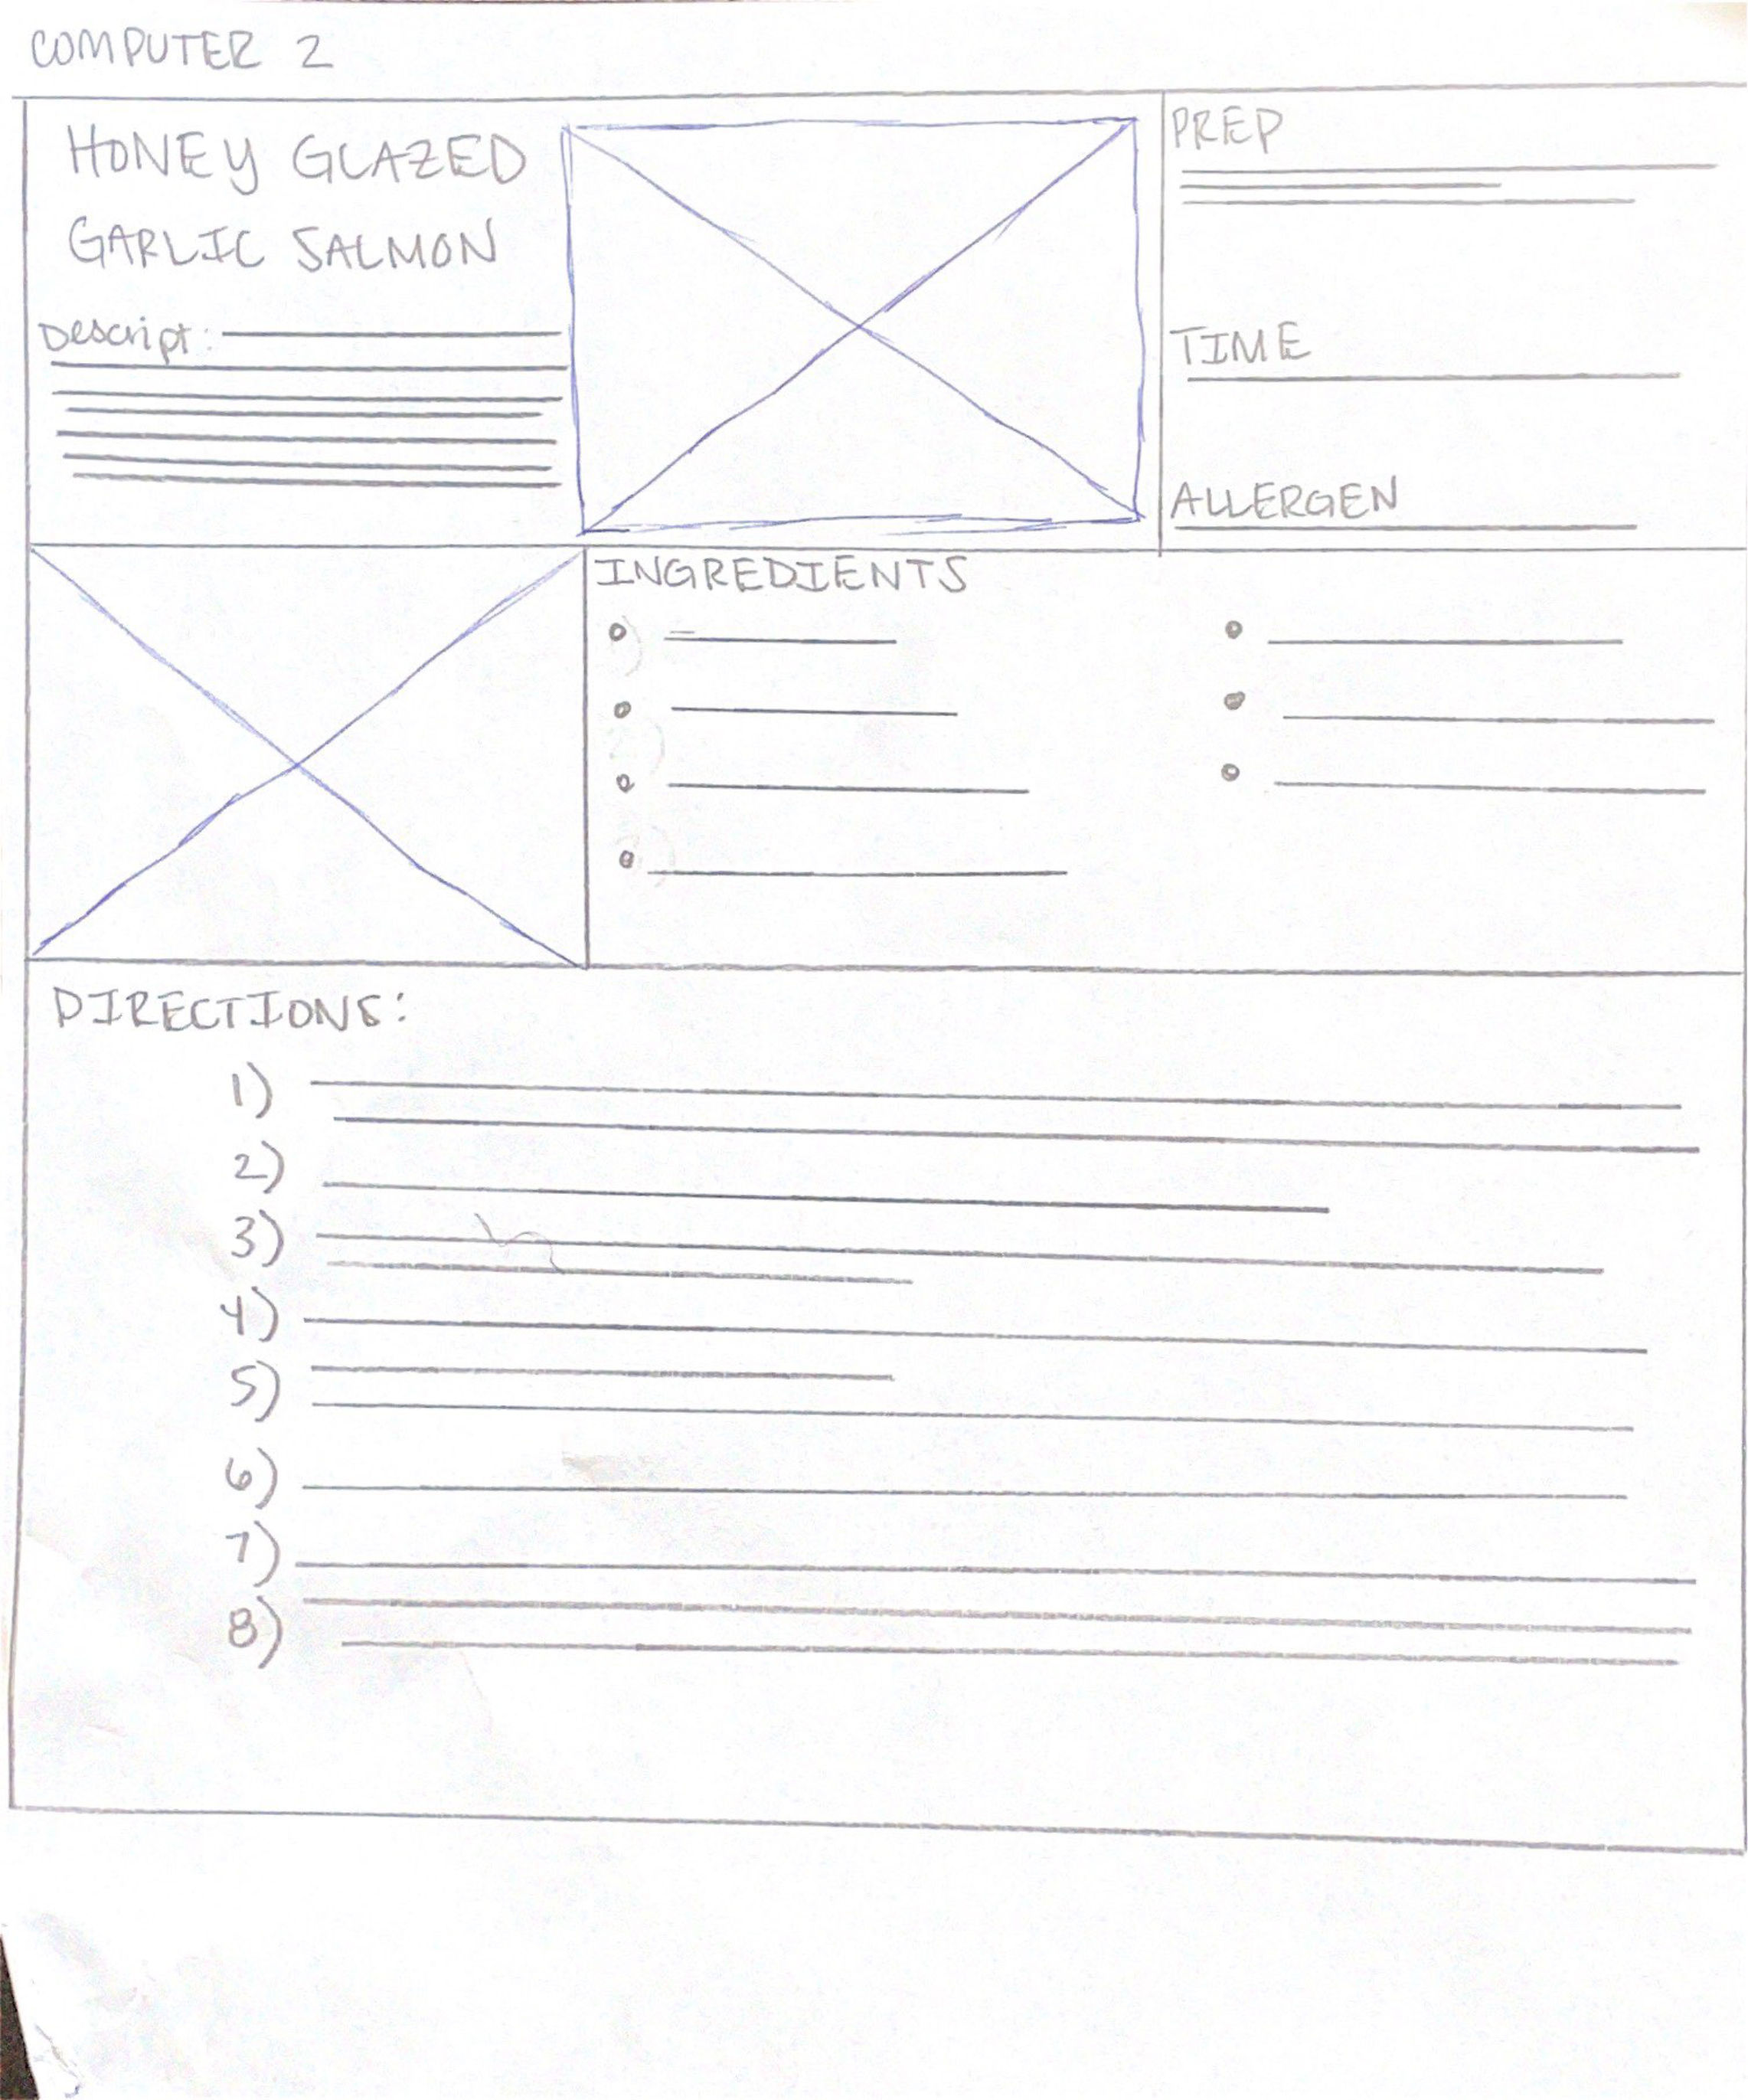 COMPUTER 2
HONEY GLAZED
GARLIC SALMON
Descript:
PREP
TIME
ALLERGEN
INGREDIENTS
DIRECTIONS:
1)
2)
3)
4)
5)
6)
7)
8)